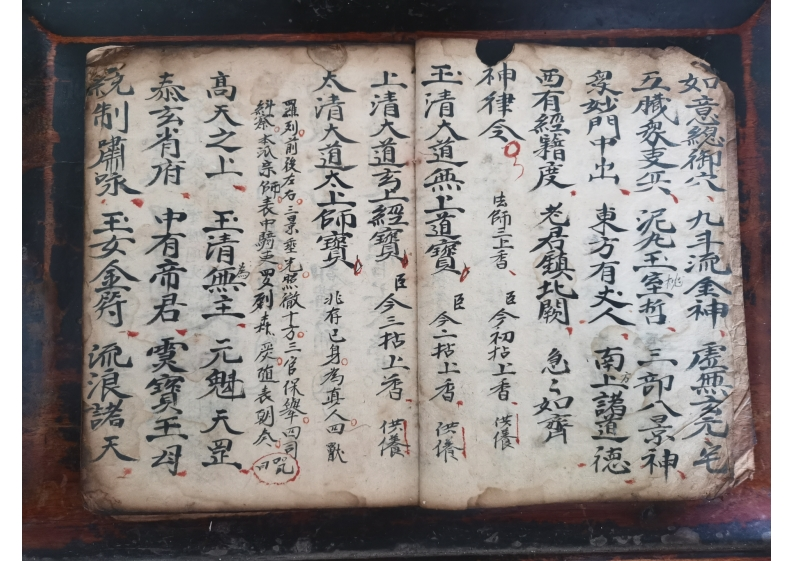 如意總御穴 九斗流金神 虛無玄元宅
五臟衆支 泥丸玉室哲 三部八景神
衆妙門中出 東方有丈人 南上諸道德
西有經籍度 老君鎮北闕 急々如齊
神律令 法師三上香 臣今初拈上香 供養
玉清大道無上道寶 臣今二拈上香 供養
上清大道玄上經寶 臣今三拈上香 供養
太清大道太上師寶 兆存已身為真人四獸
羅列前後左右三景垂光照徹十方三官保舉四司
表中騎吏羅列森 隨表朝 咒曰
高天之上 玉清無為主 元魁天罡
泰玄省府 中有帝君 靈寶王母
統制嘯咏 玉女金符 流浪諸天